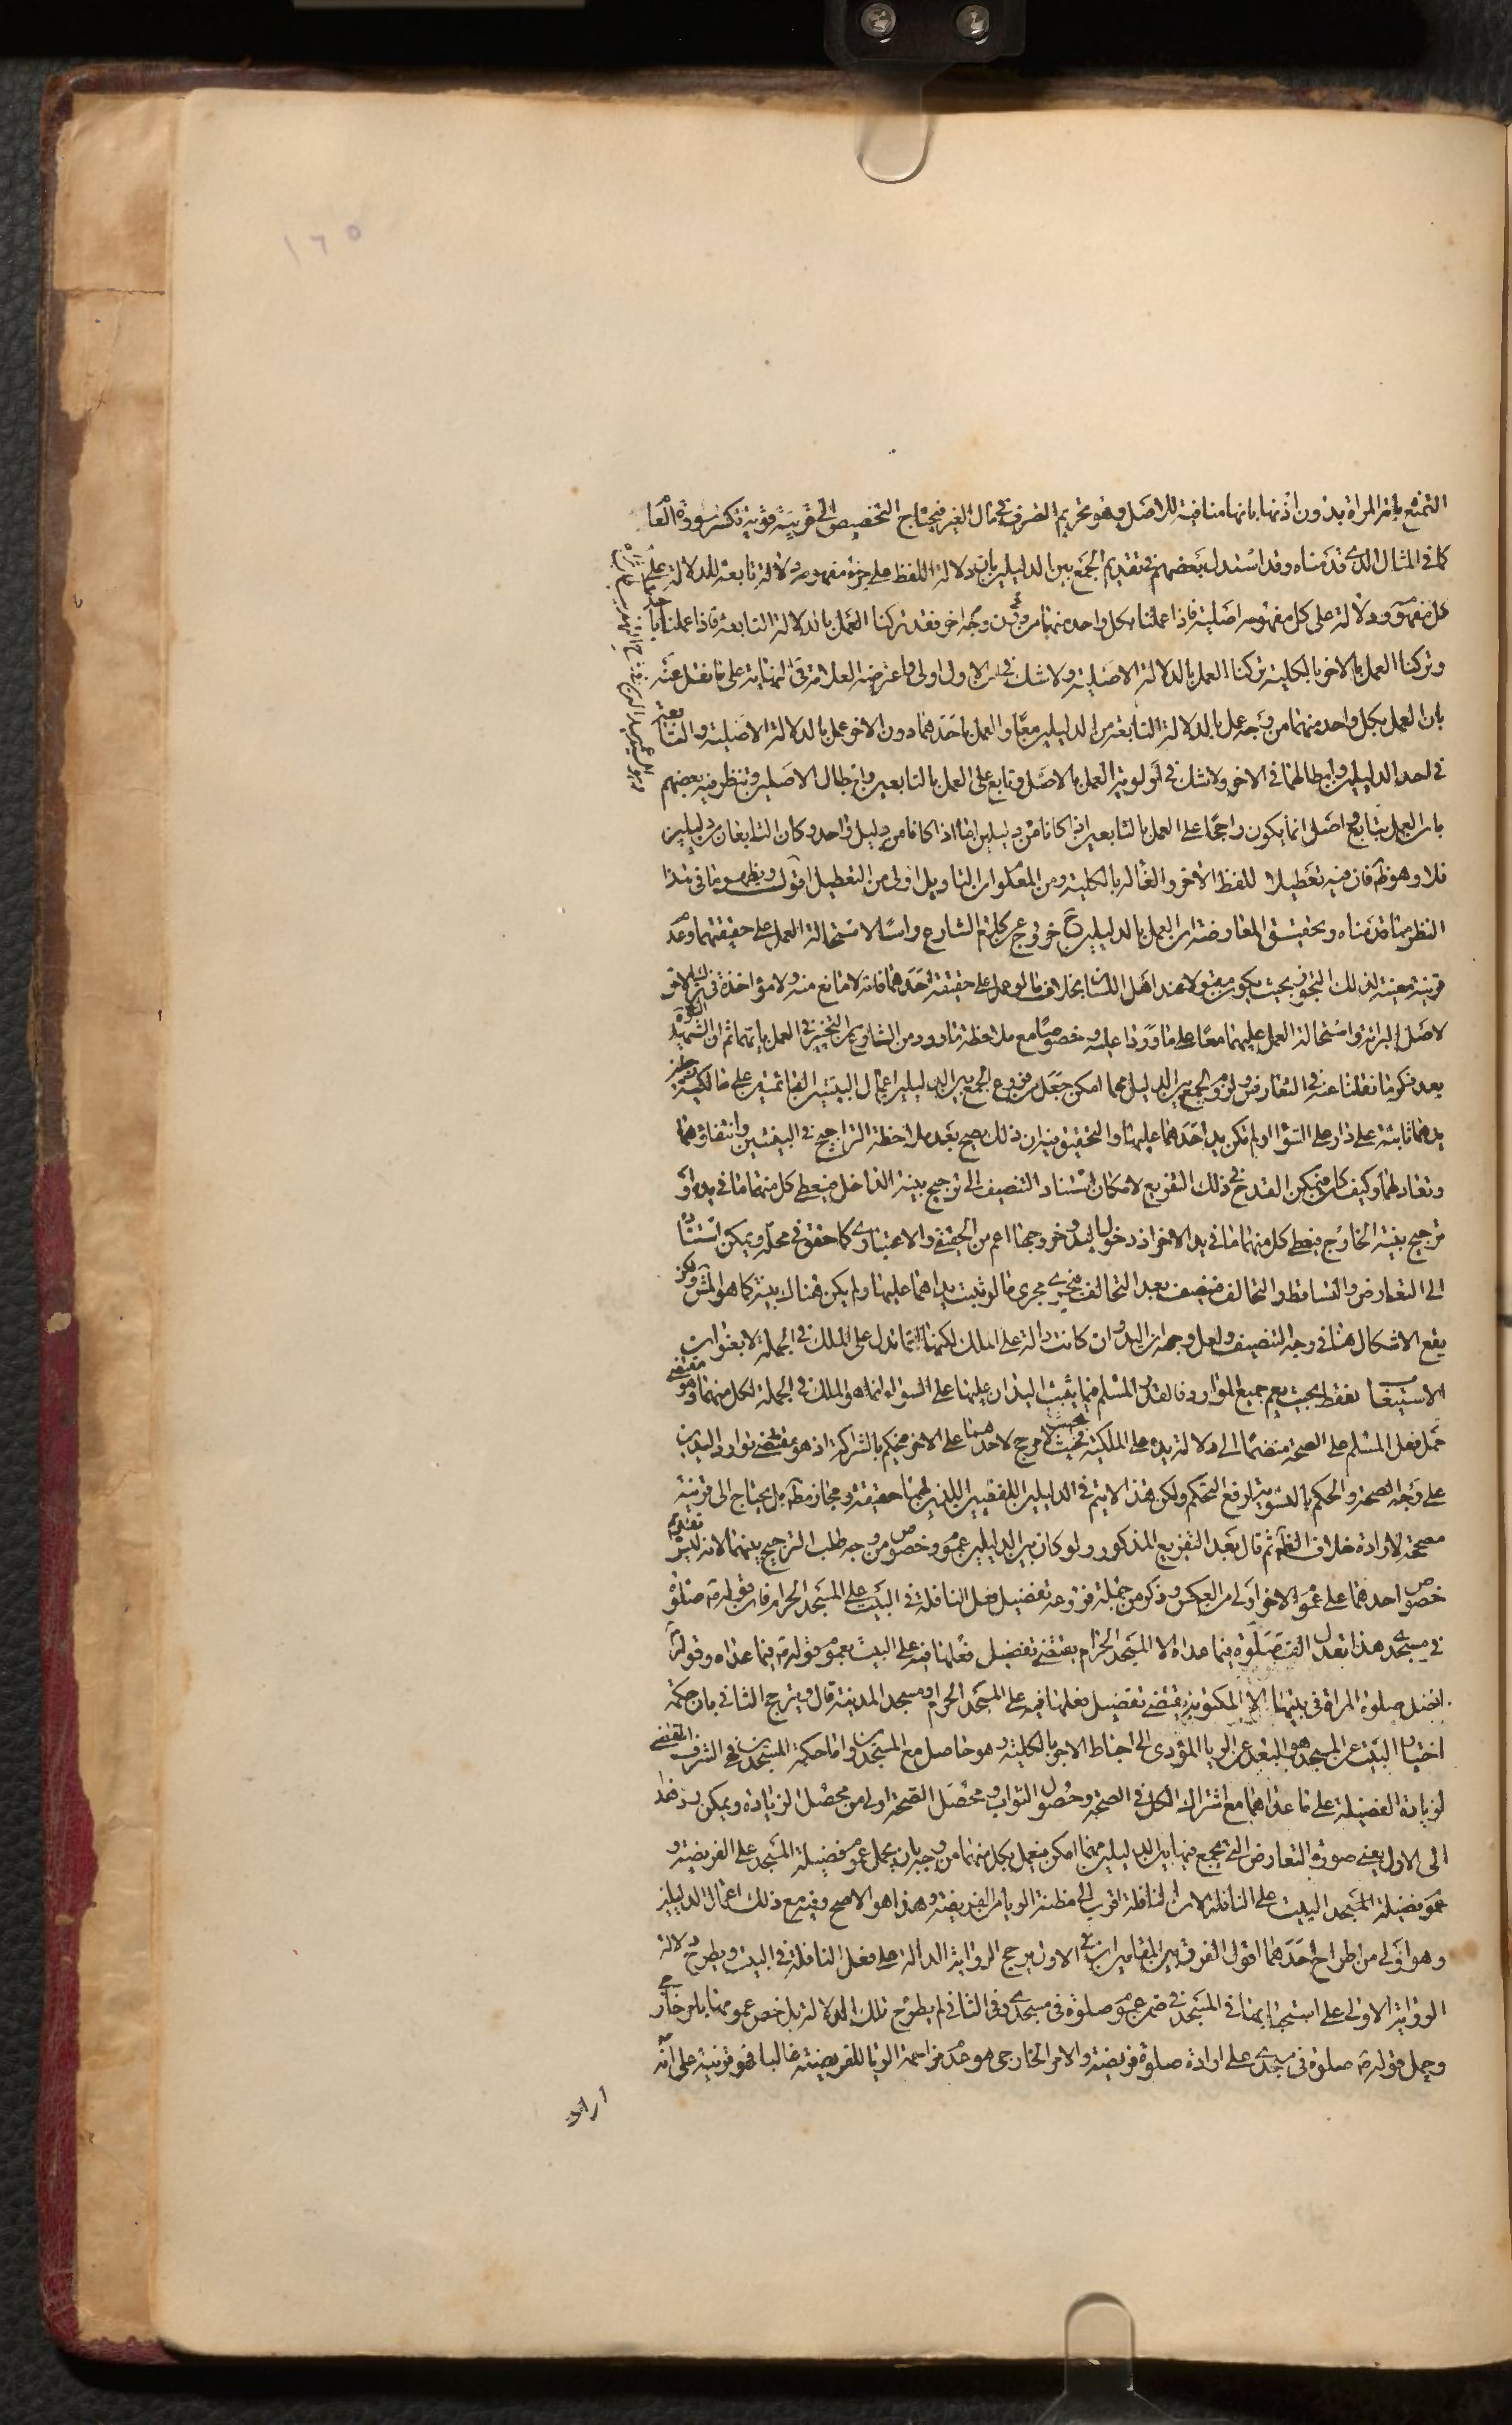 ١٦٥
التمتع بامة المراة بدون اذنها بانها منافية للاصل وهو تحريم التصرف في مال الغير فيحتاج التخصيص الى قرينة قوية تكسر سورة العا
كما فى المثال الذى قدمناه وقد استدل بعضهم فى تقديم الجمع بين الدليلين بان دلالة اللفظ على جزء مفهومه دلالة تابعة للدلالة على
كل مفهومه ودلالته على كل مفهومه اصلية فاذا عملنا بكل واحد منهما من وجه دون وجه اخر فقد تركنا العمل بالدلالة التابعة فاذا عملنا باحدهما
وتركنا العمل بالاخر بالكلية تركنا العمل بالدلالة الاصلية ولا شك فى ان الاول اولى واعترضه العلامة فى النهاية على ما نقل عنه
بان العمل بكل واحد منهما من وجه عمل بالدلالة التابعة من الدليلين معا والعمل باحدهما دون الاخر عمل بالدلالة الاصلية والتابعة
فى احد الدليلين وابطالهما فى الاخر ولا شك فى اولوية العمل بالاصل وتابع على العمل بالتابعين وابطال الاصلين وتنظر فيه بعضهم
بان العمل بتابع واصل انما يكون راجحا على العمل بالتابعين اذا كانا من دليلين اما اذا كانا من دليل واحد وكان التابعان من دليلين
فلا وهو ظم فان فيه تعطيلا للفظ الاخر والغاء له بالكلية ومن المعلوم ان التاويل اولى من التعطيل اقول ويظهر ما فى هذا
النظر مما قدمناه وتحقيق المعارضة ان العمل بالدليلين ح خروج عن كلام الشارع راسا لاستحالة العمل على حقيقتهما وعدم
قرينة معينة لذلك التجوز بحيث يكون مقبولا عند اهل اللسان بخلاف ما لو عمل على حقيقة احدهما فانه لا مانع منه ولا مؤاخذة فى ترك الاخر
لاصل البرائة واستحالة العمل عليهما معا على ما وردا عليه خصوصا مع ملاحظة ما ورد من الشارع من التخيير فى العمل بايهما ثم ان الشهيد الثانى ره
بعد ذكر ما نقلنا عنه فى التعارض ولزوم الجمع بين الدليلين مهما امكن جعل من فروع الجمع بين الدليلين اعمال البينتين القائمتين على مالكية رجلين
يدهما ثابتة على دار على السواء او لم تكن يد احدهما عليها والتحقيق فيه ان ذلك يصح بعد ملاحظة التراجيح فى البينتين وانتفاؤهما
وتعادلهما وكيف كان فيمكن القدح فى ذلك التفريع لامكان استناد التنصيف الى ترجيح بينة الداخل فيعطى كل منهما ما فى يده او
ترجيح بينة الخارج فيعطى كل منهما ما فى يد الاخر اذ دخول اليد وخروجها اعم من الحقيقى والاعتبارى كما حقق فى محله ويمكن استناده
الى التعارض والتساقط والتحالف فينصف بعد التحالف فيجرى مجرى ما لو ثبت يداهما عليها ولم يكن هناك بينة كما هو المش ولكن
يقع الاشكال هنا فى وجه التنصيف ولعل وجهه ان اليد وان كانت دالة على الملك لكنها انما تدل على الملك فى الجملة لا بعنوان
الاستيعاب فقط بحيث يعم جميع الموارد فالقدر المسلم فيما يثبت اليدان عليها على السواء انما هو الملك فى الجملة لكل منهما وهو مقتضى
حمل فعل المسلم على الصحة منضما الى دلالة يده على الملكية فحيث لا مرجح لاحدهما على الاخر فيحكم بالشراكة اذ هو مقتضى توارد اليدين
على وجه الصحة والحكم بالتسوية لرفع التحكم ولكن هذا لا يتم فى الدليلين اللفظيين اللذين لهما حقيقة ومجاز مط بل يحتاج الى قرينة
مصححة لارادة خلاف الظم ثم قال بعد التفريع المذكور ولو كان بين الدليلين عموم وخصوص من وجه طلب الترجيح بينهما لانه ليس تقديم
خصوص احدهما على عموم الاخر اولى من العكس وذكر من جملة فروعه تفضيل فعل النافلة فى البيت على المسجد الحرام فان قوله ص صلوة
فى مسجدى هذا تعدل الف صلوة فيما عداه الا المسجد الحرام يقتضى تفضيل فعلها فيه على البيت بعموم قوله ص فيما عداه وقوله ص
افضل صلوة المراة فى بيتها الا المكتوبة يقتضى تفضيل فعلها فيه على المسجد الحرام ومسجد المدينة قال ويترجح الثانى بان حكمة
اختيار البيت عن المسجد هو البعد عن الريا المؤدى الى احباط الاجر بالكلية وهو حاصل مع المسجدين واما حكمة المسجدين فهى الشرف المقتضى
لزيادة الفضيلة على ما عداهما مع اشتراك الكل فى الصحة وحصول الثواب ومحصل الصحة اولى من محصل الزيادة ويمكن رد هذا
الى الاول يعنى صورة التعارض التى يجمع فيها بين الدليلين مهما امكن فيعمل بكل منهما من وجه بان يحمل عموم فضيلة المسجد على الفريضة و
عموم فضيلة المسجد البيت على النافلة لان النافلة اقرب الى مظنة الريا من الفريضة وهذا هو الاصح وفيه مع ذلك اعمال الدليلين
وهو اولى من اطراح احدهما اقول الفرق بين المقامين ان فى الاول يرجح الرواية الدالة على فعل النافلة فى البيت ويطرح دلالة
الرواية الاولى على استحبابها فى المسجد فى ضمن عموم صلوة فى مسجدى وفى الثانى لم يطرح تلك الدلالة بل خص عمومها بامر خارجى
وحمل قوله ص صلوة فى مسجدى على ارادة صلوة فريضة والامر الخارجى هو عدم مزاحمة الريا للفريضة غالبا فهو قرينة على انه
اراد